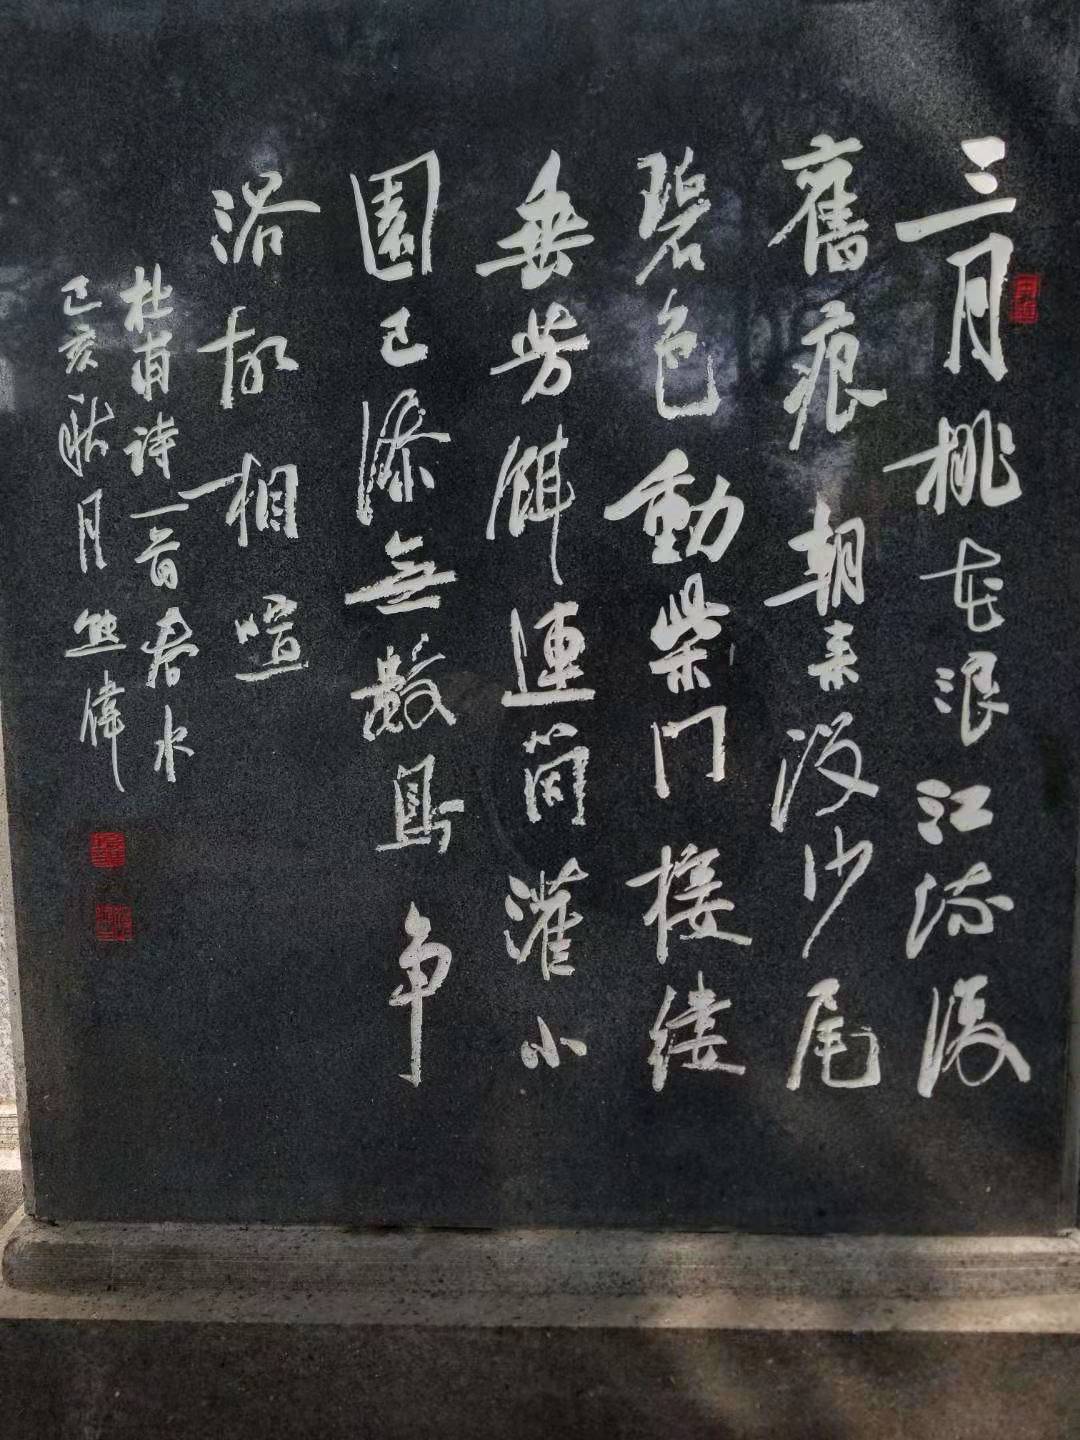 三月桃花浪江流復
舊痕朝来没沙尾
碧色動柴門接縷
垂芳餌連筒灌小
園已添無數鳥争
浴故相喧
杜甫诗一首春水
己亥秋月熊偉